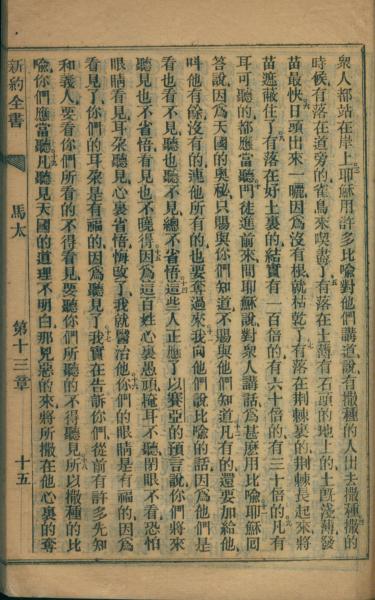 衆人都站在岸上耶穌用許多比喻對他們講道說有撒種的人出去撒種撒的
時候有落在道旁的雀鳥來喫盡了有落在土薄有石頭的地上的土旣淺薄發
苗最快日頭出來一曬因爲沒有根就枯乾了有落在荆棘裏的荆棘長起來將
苗遮蔽住了有落在好土裏的結實有一百倍的有六十倍的有三十倍的凡有
耳可聽的都應當聽門徒進前來問耶穌說對衆人講話爲甚麽用比喻耶穌回
答說因爲天國的奧秘只賜與你們知道不賜與他們知道凡有的還要加給他
呌他有餘沒有的連他所有的也要奪過來我向他們說比喻的話因爲他們是
看也看不見聽也聽不見總不省悟這些人正應了以賽亞的預言說你們將來
聽見也不省悟看見也不曉得因爲這百姓心裏愚頑掩耳不聽閉眼不看恐怕
眼睛看見耳朶聽見心裏省悟悔改了我就醫治他你們的眼睛是有福的因爲
看見了你們的耳朶是有福的因爲聽見了我實在告訴你們從前有許多先知
和義人要看你們所看的不得看見要聽你們所聽的不得聽見所以撒種的比
喻你們應當聽凡聽見天國的道理不明白那兇惡的來將所撒在他心裏的奪
新約全書
馬太
第十三章
十五